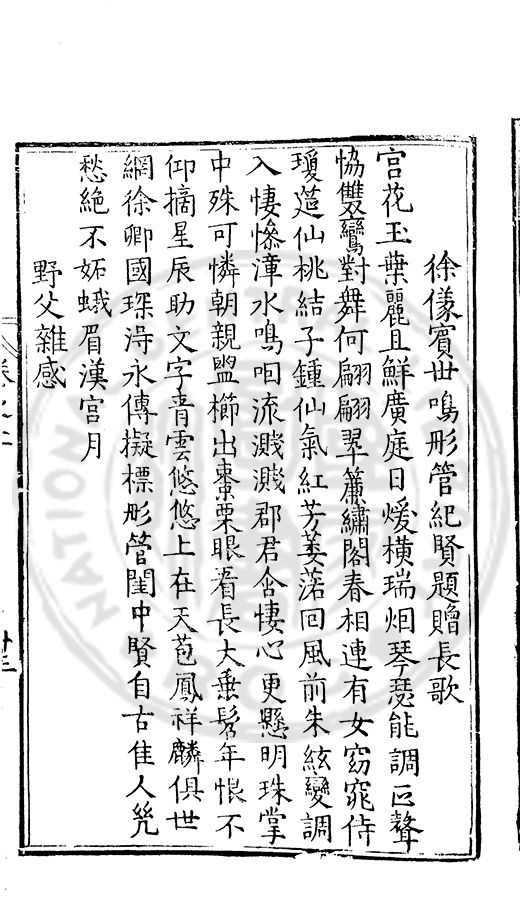 徐儀賓世鳴彤管紀賢題贈長歌
宫花玉葉麗且鮮廣庭日煖橫瑞烟琴瑟能調叵聲
恊雙鸞對舞何翩翩翠簾繡閣春相連有女窈窕侍
瓊筵仙桃結子鍾仙氣紅芳萎落囘風前朱絃變調
入悽慘漳水鳴咽流濺濺郡君含悽心更懸明珠掌
中殊可憐朝親盥櫛出棗栗眼看長大垂髫年恨不
仰摘星辰助文字青雲悠悠上在天苞鳳祥麟俱世
網徐卿國琛淂永傳擬標彤管閨中賢自古佳人㡬
愁絶不妬蛾眉漢宫月
野父雜感
卷之二